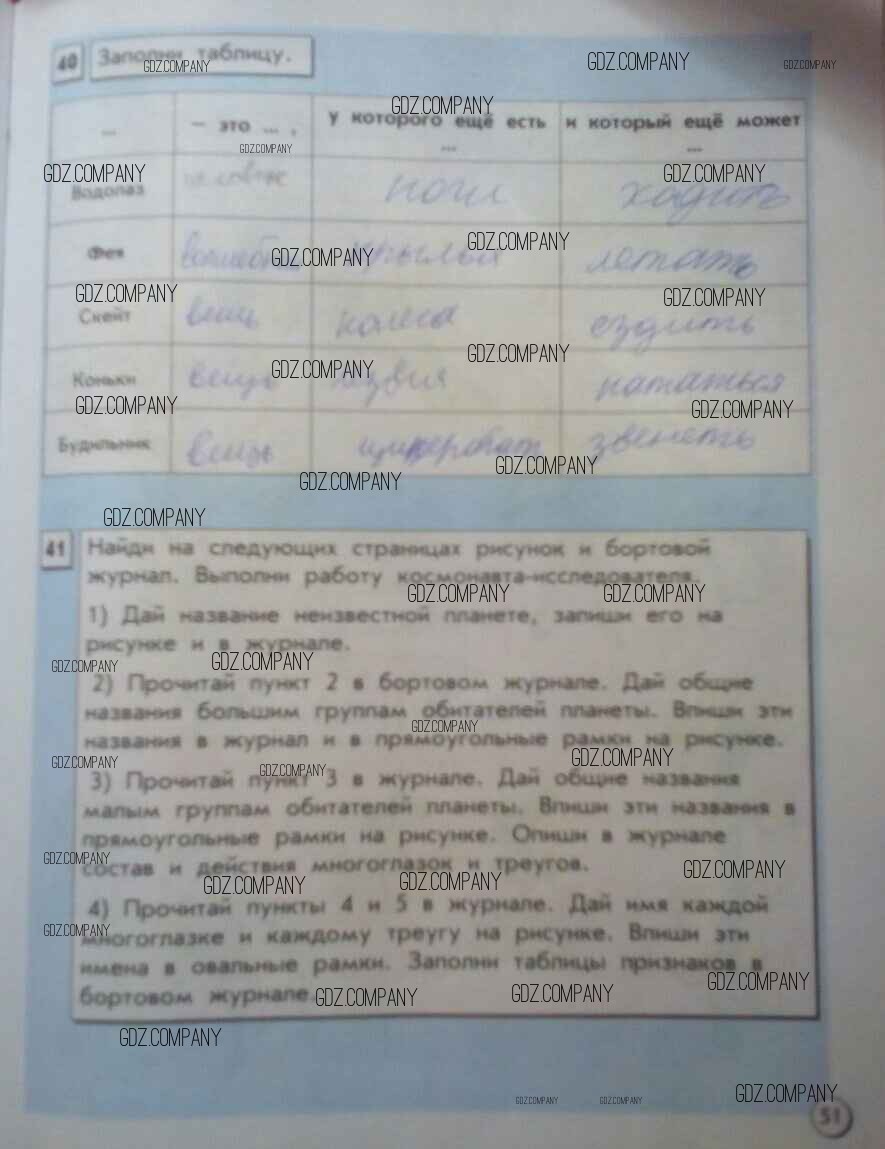 40 Заполни таблицу.
... – это ... , у которого ещё есть ... и который ещё может ...
Водолаз человек ноги ходить
Фея волшебн крылья летать
Скейт вещь колёса ездить
Коньки вещь лезвия кататься
Будильник вещь циферблат звенеть
41 Найди на следующих страницах рисунок и бортовой
журнал. Выполни работу космонавта-исследователя.
1) Дай название неизвестной планете, запиши его на
рисунке и в журнале.
2) Прочитай пункт 2 в бортовом журнале. Дай общие
названия большим группам обитателей планеты. Впиши эти
названия в журнал и в прямоугольные рамки на рисунке.
3) Прочитай пункт 3 в журнале. Дай общие названия
малым группам обитателей планеты. Впиши эти названия в
прямоугольные рамки на рисунке. Опиши в журнале
состав и действия многоглазок и треугов.
4) Прочитай пункты 4 и 5 в журнале. Дай имя каждой
многоглазке и каждому треугу на рисунке. Впиши эти
имена в овальные рамки. Заполни таблицы признаков в
бортовом журнале.
GDZ.COMPANY
51